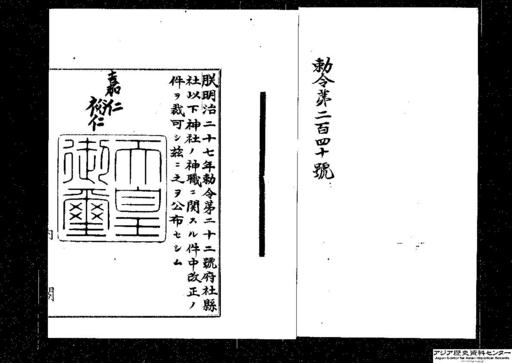 勅令第二百四十號
朕明治二十七年勅令第二十二號府社縣
社以下神社ノ神職ニ関スル件中改正ノ
件ヲ裁可シ茲ニ之ヲ公布セシム
嘉仁
裕仁
天皇
御璽
内
閣
アジア歴史資料センター
Japan Center for Asian Historical Records